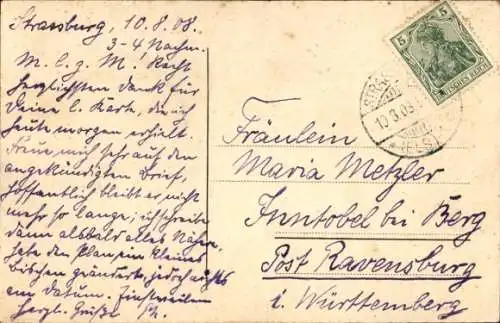 Strassburg, 10.8.08.
3-4 Nachm.
M. l. g. M. Recht
herzlichsten Dank für
Deine l. Karte, die ich
heute morgen erhielt.
Freue mich sehr auf den
angekündigten Brief,
hoffentlich bleibt er nicht
mehr so lange; ich schreibe
dann alsbald alles Nähere,
habe den Plan ein kleines
bischen geändert, jedoch nichts
am Datum. Einstweilen
herzl. Grüße
Fräulein
Maria Metzler
Inntobel bei Berg
Post Ravensburg
i. Württemberg
5
5
DEUTSCHES REICH
STRASSBURG
(ELS)